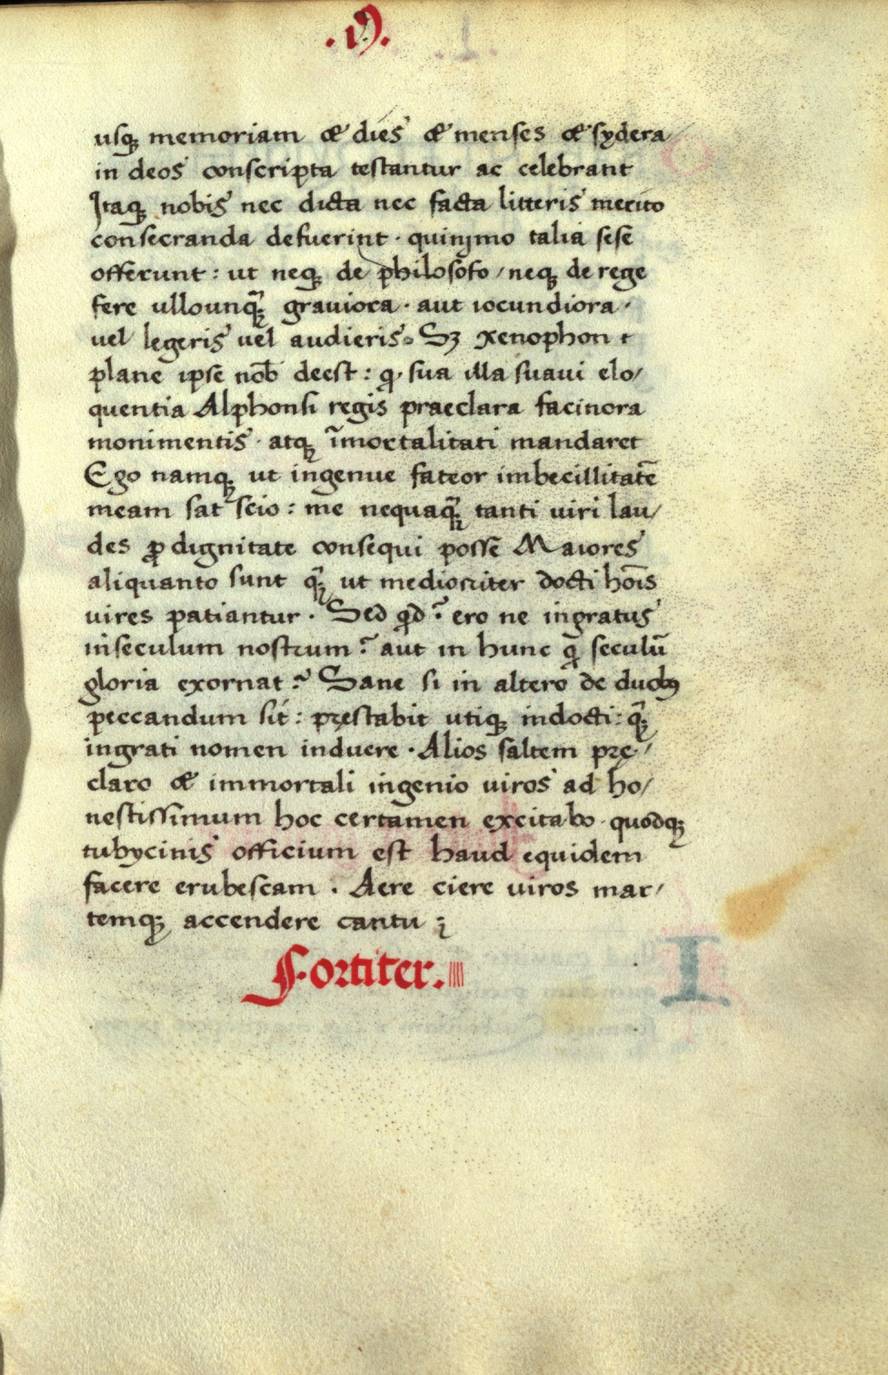 .ıỽ.
usqꝫ memoriam & dies & menses & sydera
in deos conscripta testantur ac celebrant
Itaqꝫ nobis nec dicta nec facta litteris merito
consecranda defuerint · quinimo talia sese
offerunt : ut neqꝫ de philosofo / neqꝫ de rege
fere ullounqꝫ̃ graviora · aut iocundiora ·
vel legeris vel audieris. Sꝫ xenophon
plane ipse nob̄ deest : q · sua illa suavi elo/
quentia Alphonsi regis praeclara facinora
monimentis · atqꝫ ĩmortalitati mandaret
Ego namqꝫ ut ingenue fateor imbecillitatẽ
meam sat scio : me nequaqꝫ̃ tanti viri lau/
des ꝓ dignitate consequi posse Maiores
aliquanto sunt qꝫ̃ ut mediocriter docti hoı̃s
vires patiantur · Sed qd ? ero ne ingratus
in seculum nostrum ? aut in hunc q̃ seculũ
gloria exornat ? Sane si in altero de duobꝫ
peccandum sit : pręstabit utiqꝫ indocti : qꝫ̃
ingrati nomen induere · Alios saltem prę/
claro & immortali ingenio viros ad ho/
nestissimum hoc certamen excitabo · quodqꝫ
tubycinis officium est haud equidem
facere erubescam . Aere ciere viros mar/
temqꝫ accendere cantu ;
Fortiter.